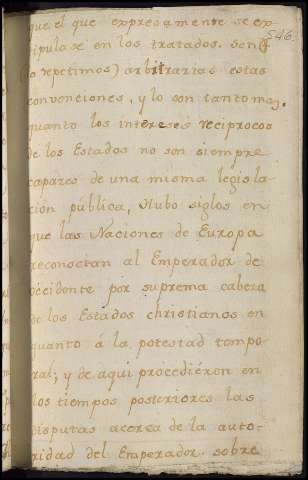 546
que el que expresamente se ex
tipulase en los tratados. Son
(lo repetimos) arbitrarias estas
convenciones, y lo son tanto mas,
quanto los intereses reciprocos
de los Estados no son siempre
capazes de una misma legisla
cion pública. Hubo siglos en
que las Naciones de Europa
reconocian al Emperador de
occidente por suprema cabeza
de los Estados christianos en
quanto á la potestad tempo
ral; y de aqui procediéron en
los tiempos posteriores las
disputas acerca de la auto
ridad del Emperador sobre